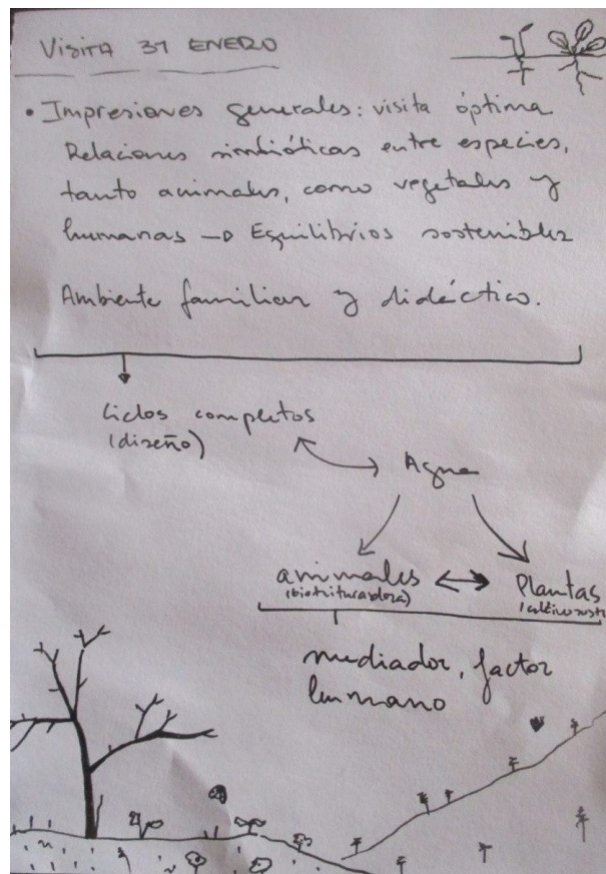 Visita 31 ENERO
• Impresiones generales: visita óptima
Relaciones simbióticas entre especies,
tanto animales, como vegetales y
humanas → Equilibrios sostenibles
Ambiente familiar y didáctico.
Ciclos completos
(diseño)
Agua
animales
(biotrituradora)
Plantas
(cultivo sost
mediador, factor
humano